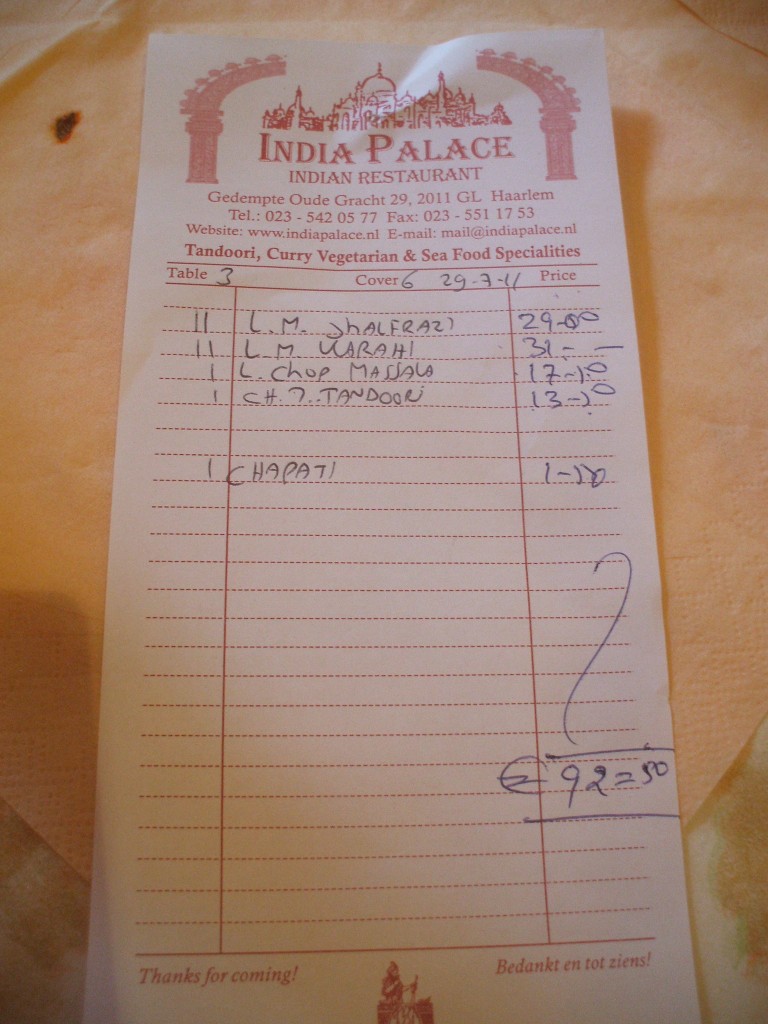 INDIA PALACE
INDIAN RESTAURANT
Gedempte Oude Gracht 29, 2011 GL Haarlem
Tel.: 023 - 542 05 77 Fax: 023 - 551 17 53
Website: www.indiapalace.nl E-mail: mail@indiapalace.nl
Tandoori, Curry Vegetarian & Sea Food Specialities
Table 3 Cover 6 29-7-11 Price
11 L.M. JHALFRAZI 29-00
11 L.M KARAHI 31-—
1 L. CHOP MASSALA 17-50
1 CH. T. TANDOORI 13-50
1 CHAPATI 1-50
€ 92=50
Thanks for coming! Bedankt en tot ziens!